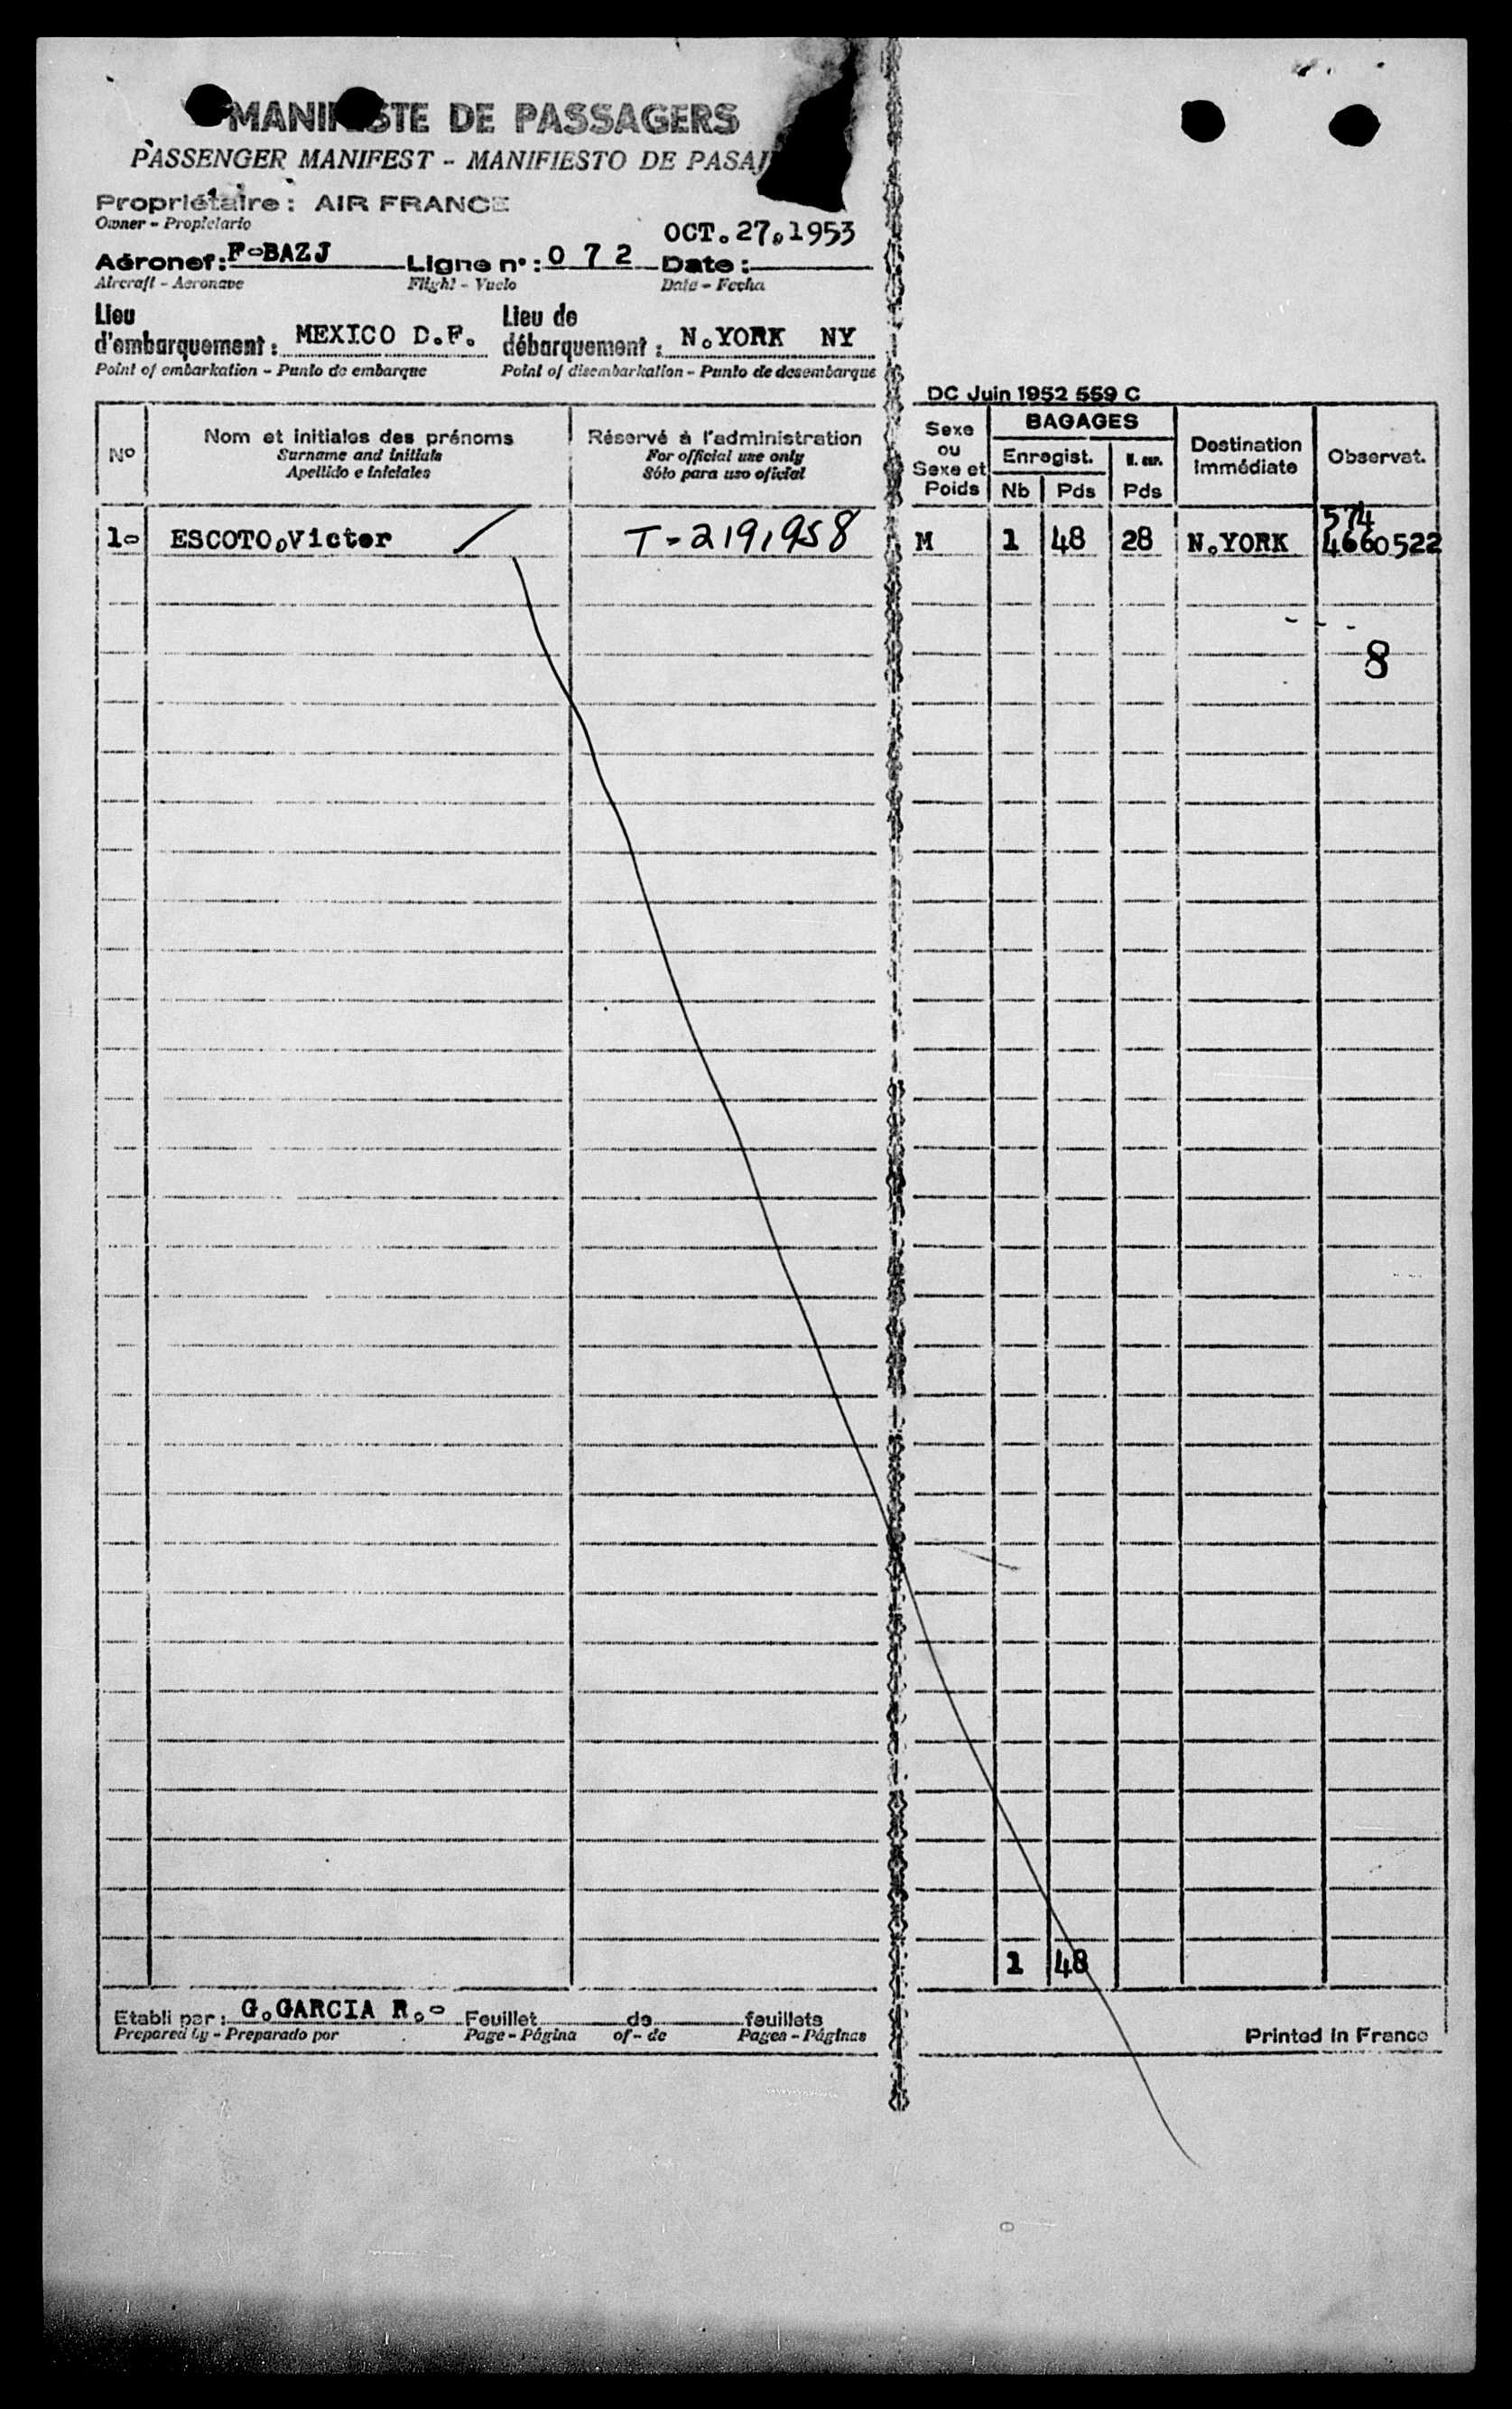 MANIFESTE DE PASSAGERS
PASSENGER MANIFEST - MANIFIESTO DE PASAJ
Propriétaire : AIR FRANCE
Owner - Propietario
OCT.27,1953
Aéronef : F-BAZJ Ligne n° : 0 7 2 Date :
Aircraft - Aeronave Flight - Vuelo Date - Fecha
Lieu d'embarquement : MEXICO D.F. Lieu de débarquement : N.YORK NY
Point of embarkation - Punto de embarque Point of disembarkation - Punto de desembarque
DC Juin 1952 559 C
N° Nom et initiales des prénoms Réservé à l'administration Sexe ou Sexe et Poids BAGAGES Destination immédiate Observat.
Surname and initials For official use only Enregist.
Apellido e iniciales Sólo para uso oficial Nb Pds Pds
574
1- ESCOTO,Victor / T-219,958 M 1 48 28 N.YORK 4660522
8
1 48
Etabli par : G.GARCIA R.- Feuillet de feuillets
Prepared by - Preparado por Page - Página of - de Pages - Páginas
Printed in France